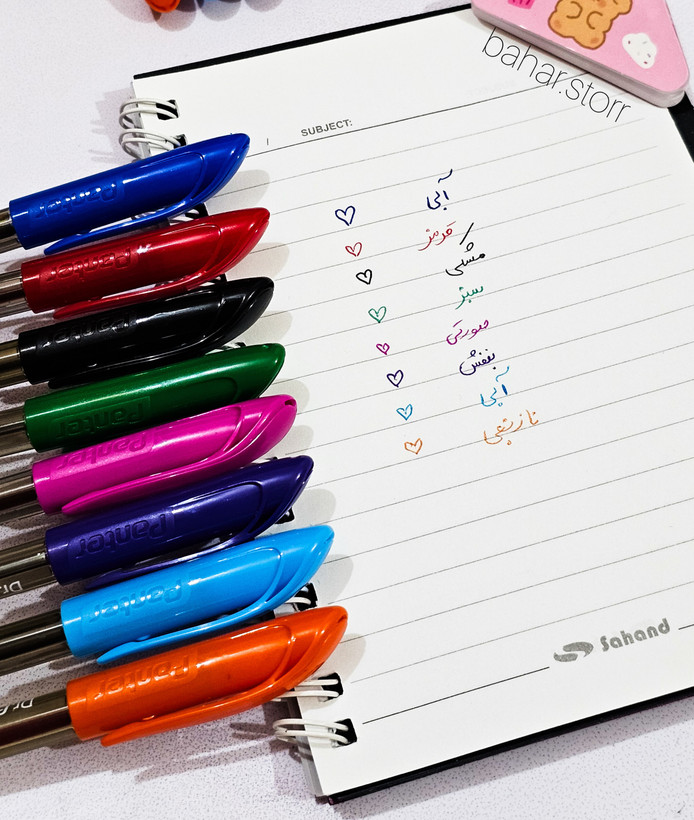 bahar.storr
SUBJECT:
آبی
قرمز
مشکی
سبز
صورتی
بنفش
آبی
نارنجی
Panter
Panter
Panter
Panter
Panter
Panter
Panter
Panter
Sahand